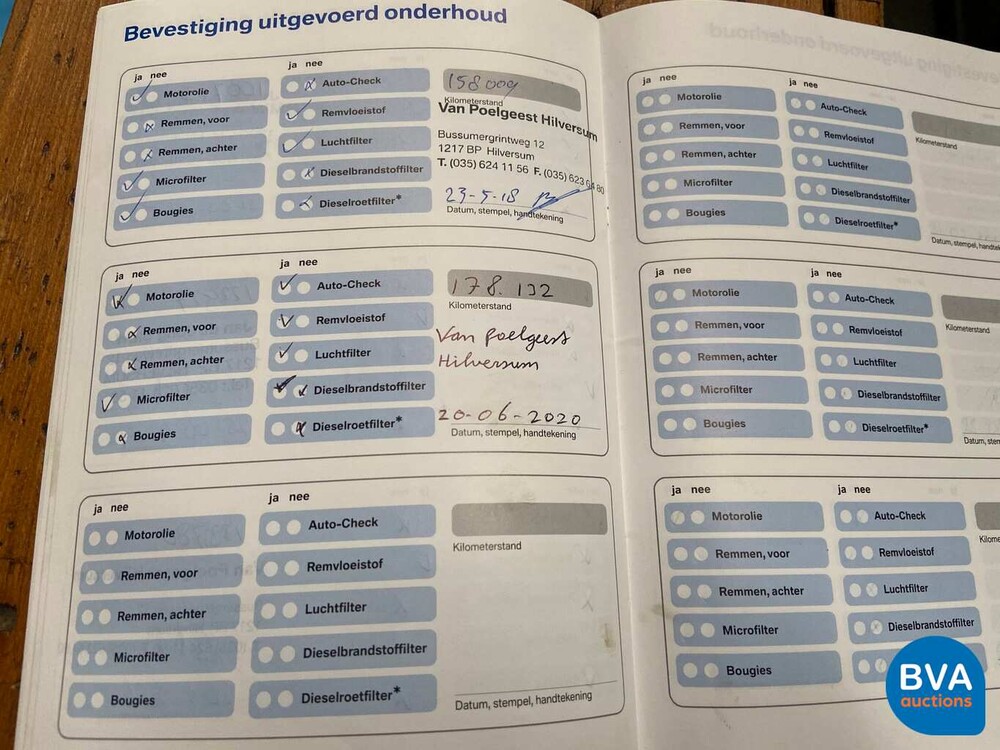 Bevestiging uitgevoerd onderhoud
ja nee
ja nee
Motorolie
Remmen, voor
Remmen, achter
Microfilter
Bougies
Auto-Check
Remvloeistof
Luchtfilter
Dieselbrandstoffilter
Dieselroetfilter*
158009
Kilometerstand
Van Poelgeest Hilversum
Bussumergrintweg 12
1217 BP Hilversum
T. (035) 624 11 56 F. (035) 623 80
23-5-18
Datum, stempel, handtekening
ja nee
ja nee
Motorolie
Remmen, voor
Remmen, achter
Microfilter
Bougies
Auto-Check
Remvloeistof
Luchtfilter
Dieselbrandstoffilter
Dieselroetfilter*
178.132
Kilometerstand
Van Poelgeest
Hilversum
20-06-2020
Datum, stempel, handtekening
ja nee
ja nee
Motorolie
Remmen, voor
Remmen, achter
Microfilter
Bougies
Auto-Check
Remvloeistof
Luchtfilter
Dieselbrandstoffilter
Dieselroetfilter*
Kilometerstand
Datum, stempel, handtekening
ja nee
ja nee
Motorolie
Remmen, voor
Remmen, achter
Microfilter
Bougies
Auto-Check
Remvloeistof
Luchtfilter
Dieselbrandstoffilter
Dieselroetfilter*
Kilometerstand
Datum, stempel, han
ja nee
ja nee
Motorolie
Remmen, voor
Remmen, achter
Microfilter
Bougies
Auto-Check
Remvloeistof
Luchtfilter
Dieselbrandstoffilter
Dieselroetfilter*
Kilometerstand
Datum, stem
ja nee
ja nee
Motorolie
Remmen, voor
Remmen, achter
Microfilter
Bougies
Auto-Check
Remvloeistof
Luchtfilter
Dieselbrandstoffilter
Kilome
BVA
auctions